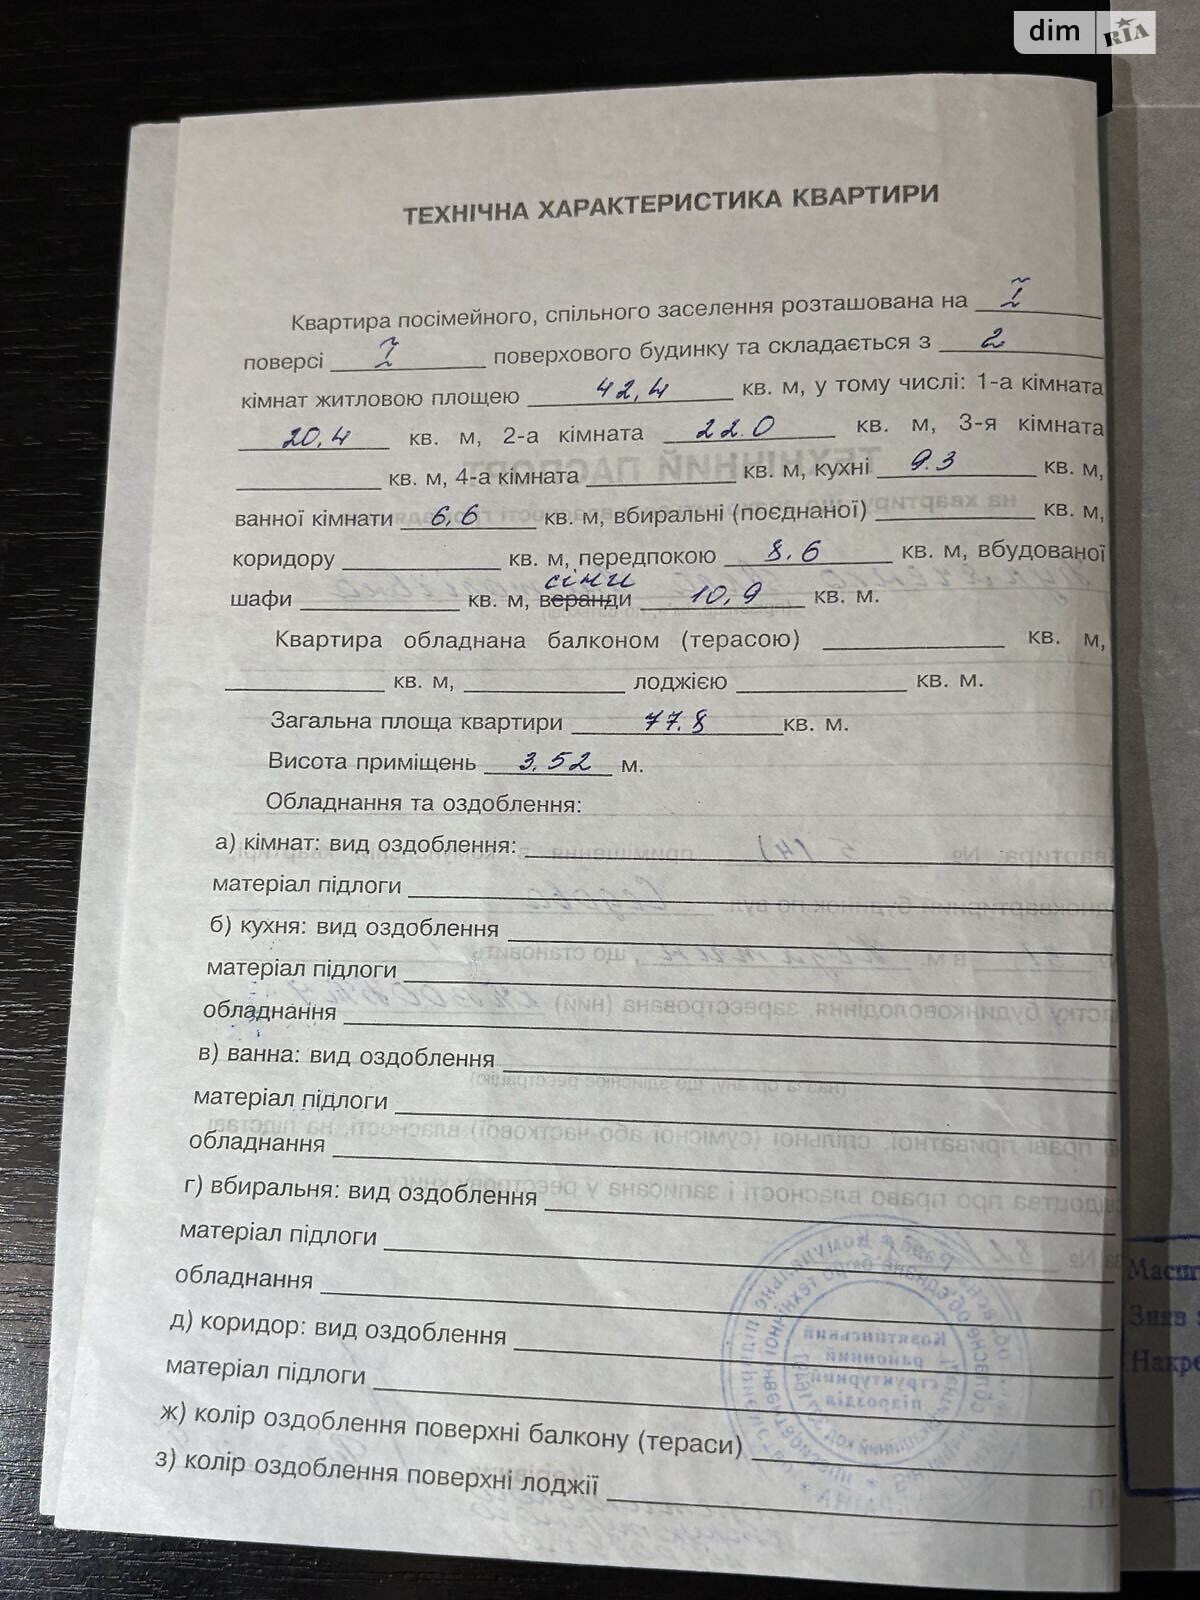 dim RIA
ТЕХНІЧНА ХАРАКТЕРИСТИКА КВАРТИРИ
Квартира посімейного, спільного заселення розташована на 1
поверсі 1 поверхового будинку та складається з 2
кімнат житловою площею 42,4 кв. м, у тому числі: 1-а кімната
20,4 кв. м, 2-а кімната 22.0 кв. м, 3-я кімната
кв. м, 4-а кімната кв. м, кухні 9.3 кв. м,
ванної кімнати 6,6 кв. м, вбиральні (поєднаної) кв. м,
коридору кв. м, передпокою 8.6 кв. м, вбудованої
сіни
шафи кв. м, веранди 10,9 кв. м.
Квартира обладнана балконом (терасою) кв. м,
кв. м, лоджією кв. м.
Загальна площа квартири 77.8 кв. м.
Висота приміщень 3.52 м.
Обладнання та оздоблення:
а) кімнат: вид оздоблення:
матеріал підлоги
б) кухня: вид оздоблення
матеріал підлоги
обладнання
в) ванна: вид оздоблення
матеріал підлоги
обладнання
г) вбиральня: вид оздоблення
матеріал підлоги
обладнання
д) коридор: вид оздоблення
матеріал підлоги
ж) колір оздоблення поверхні балкону (тераси)
з) колір оздоблення поверхні лоджії